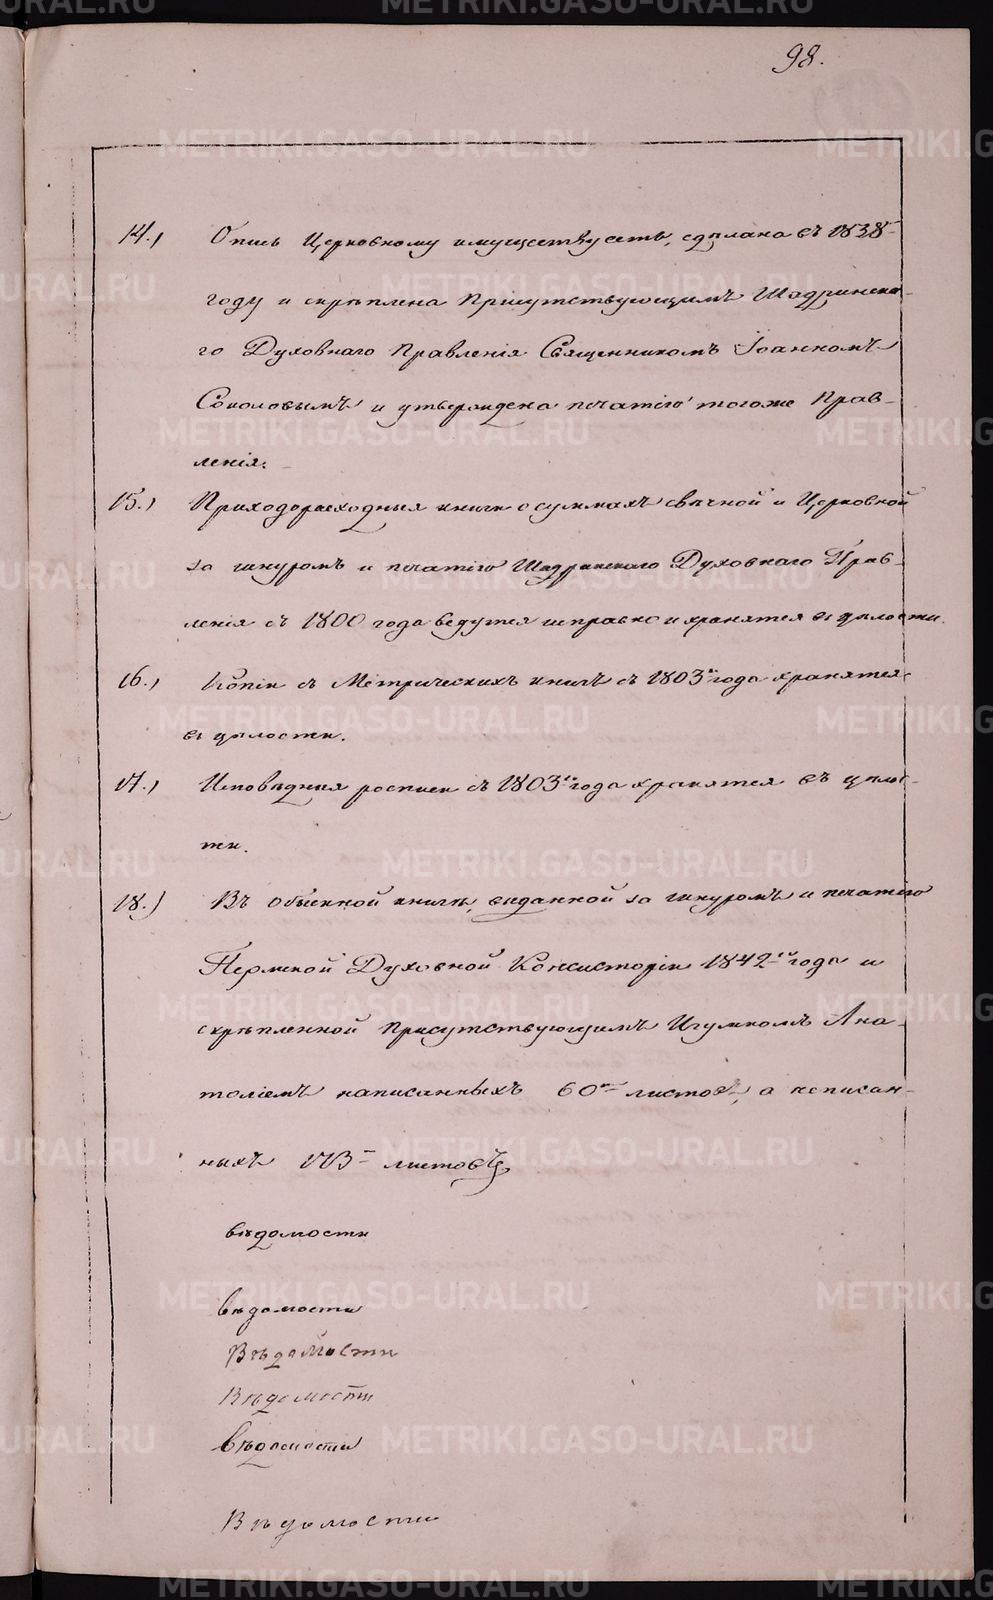 98.
14.) Опись Церковному имуществу есть, сдѣлана въ 1838
году и скрѣплена Присутствующимъ Шадринска-
го Духовнаго Правленія Священникомъ Іоанномъ
Соколовымъ и утверждена печатію тогоже Прав-
ленія.
15.) Приходорасходныя книги о суммахъ свѣчной и Церковной
за шнуромъ и печатію Шадринскаго Духовнаго Прав-
ленія съ 1800 года ведутся исправно и хранятся въ цѣлости.
16.) Копіи съ Метрическихъ книгъ съ 1803го года хранятся
въ цѣлости.
17.) Исповѣдныя росписи съ 1803го года хранятся въ цѣлос-
ти.
18.) Въ обыскной книгѣ, выданной за шнуромъ и печатію
Пермской Духовной Консисторіи 1842го года и
скрѣпленной Присутствующимъ Игуменомъ Ана-
толіемъ написанныхъ 60ть листовъ, а неписан-
ныхъ 113 листовъ
вѣдомости
вѣдомости
Вѣдомости
Вѣдомости
вѣдомости
Вѣдомости
METRIKI.GASO-URAL.RU